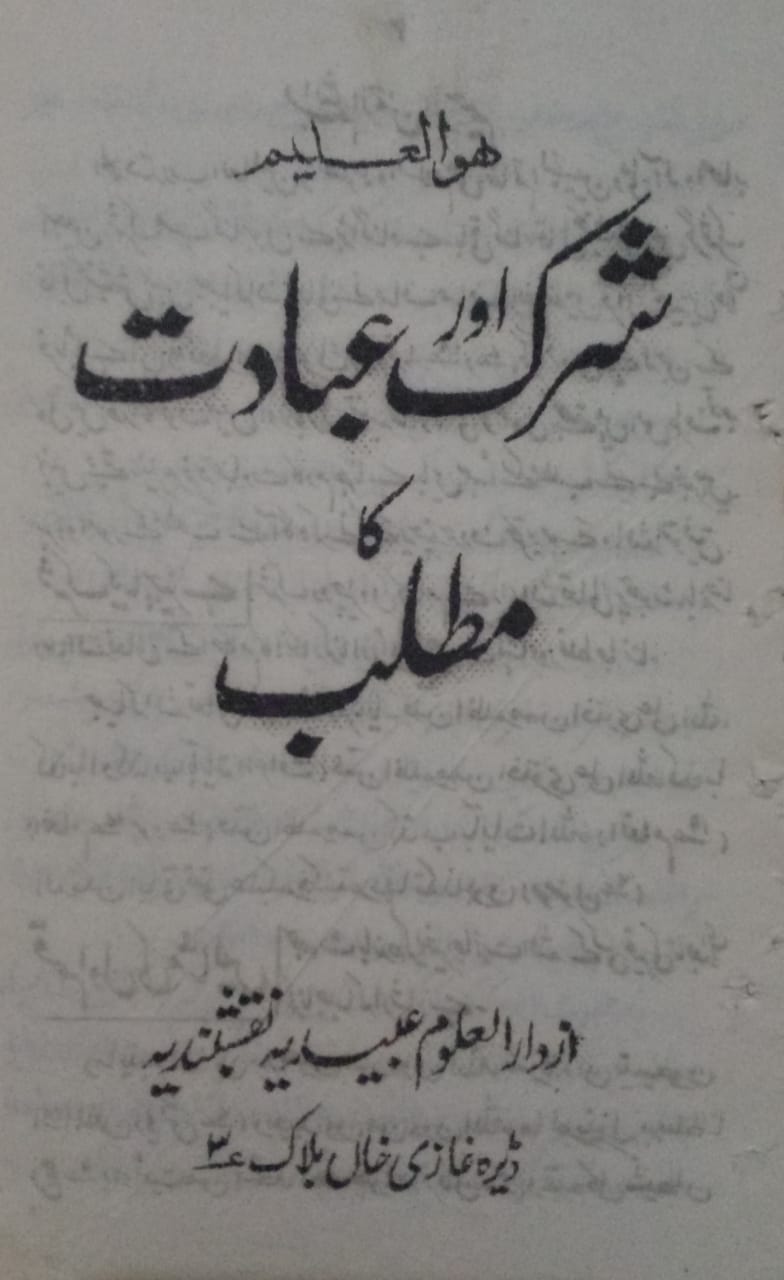 هوالعليم
شرک اور عبادت
کا
مطلب
از دارالعلوم عبیدیہ نقشبندیہ
ڈیرہ غازی خاں بلاک ؏۳